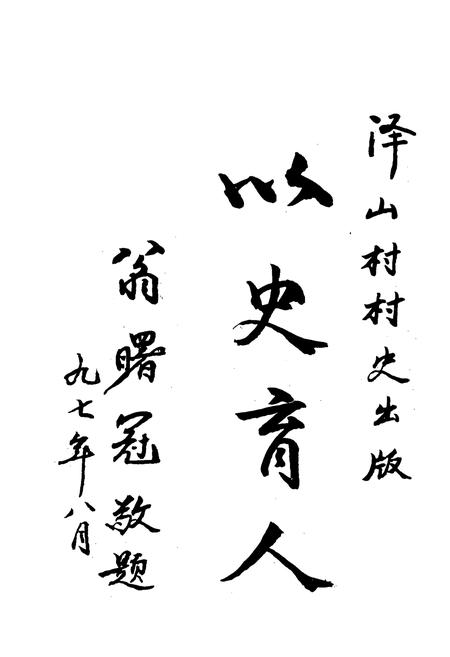 泽山村村史出版
以史育人
翁曙冠敬题
九七年八月